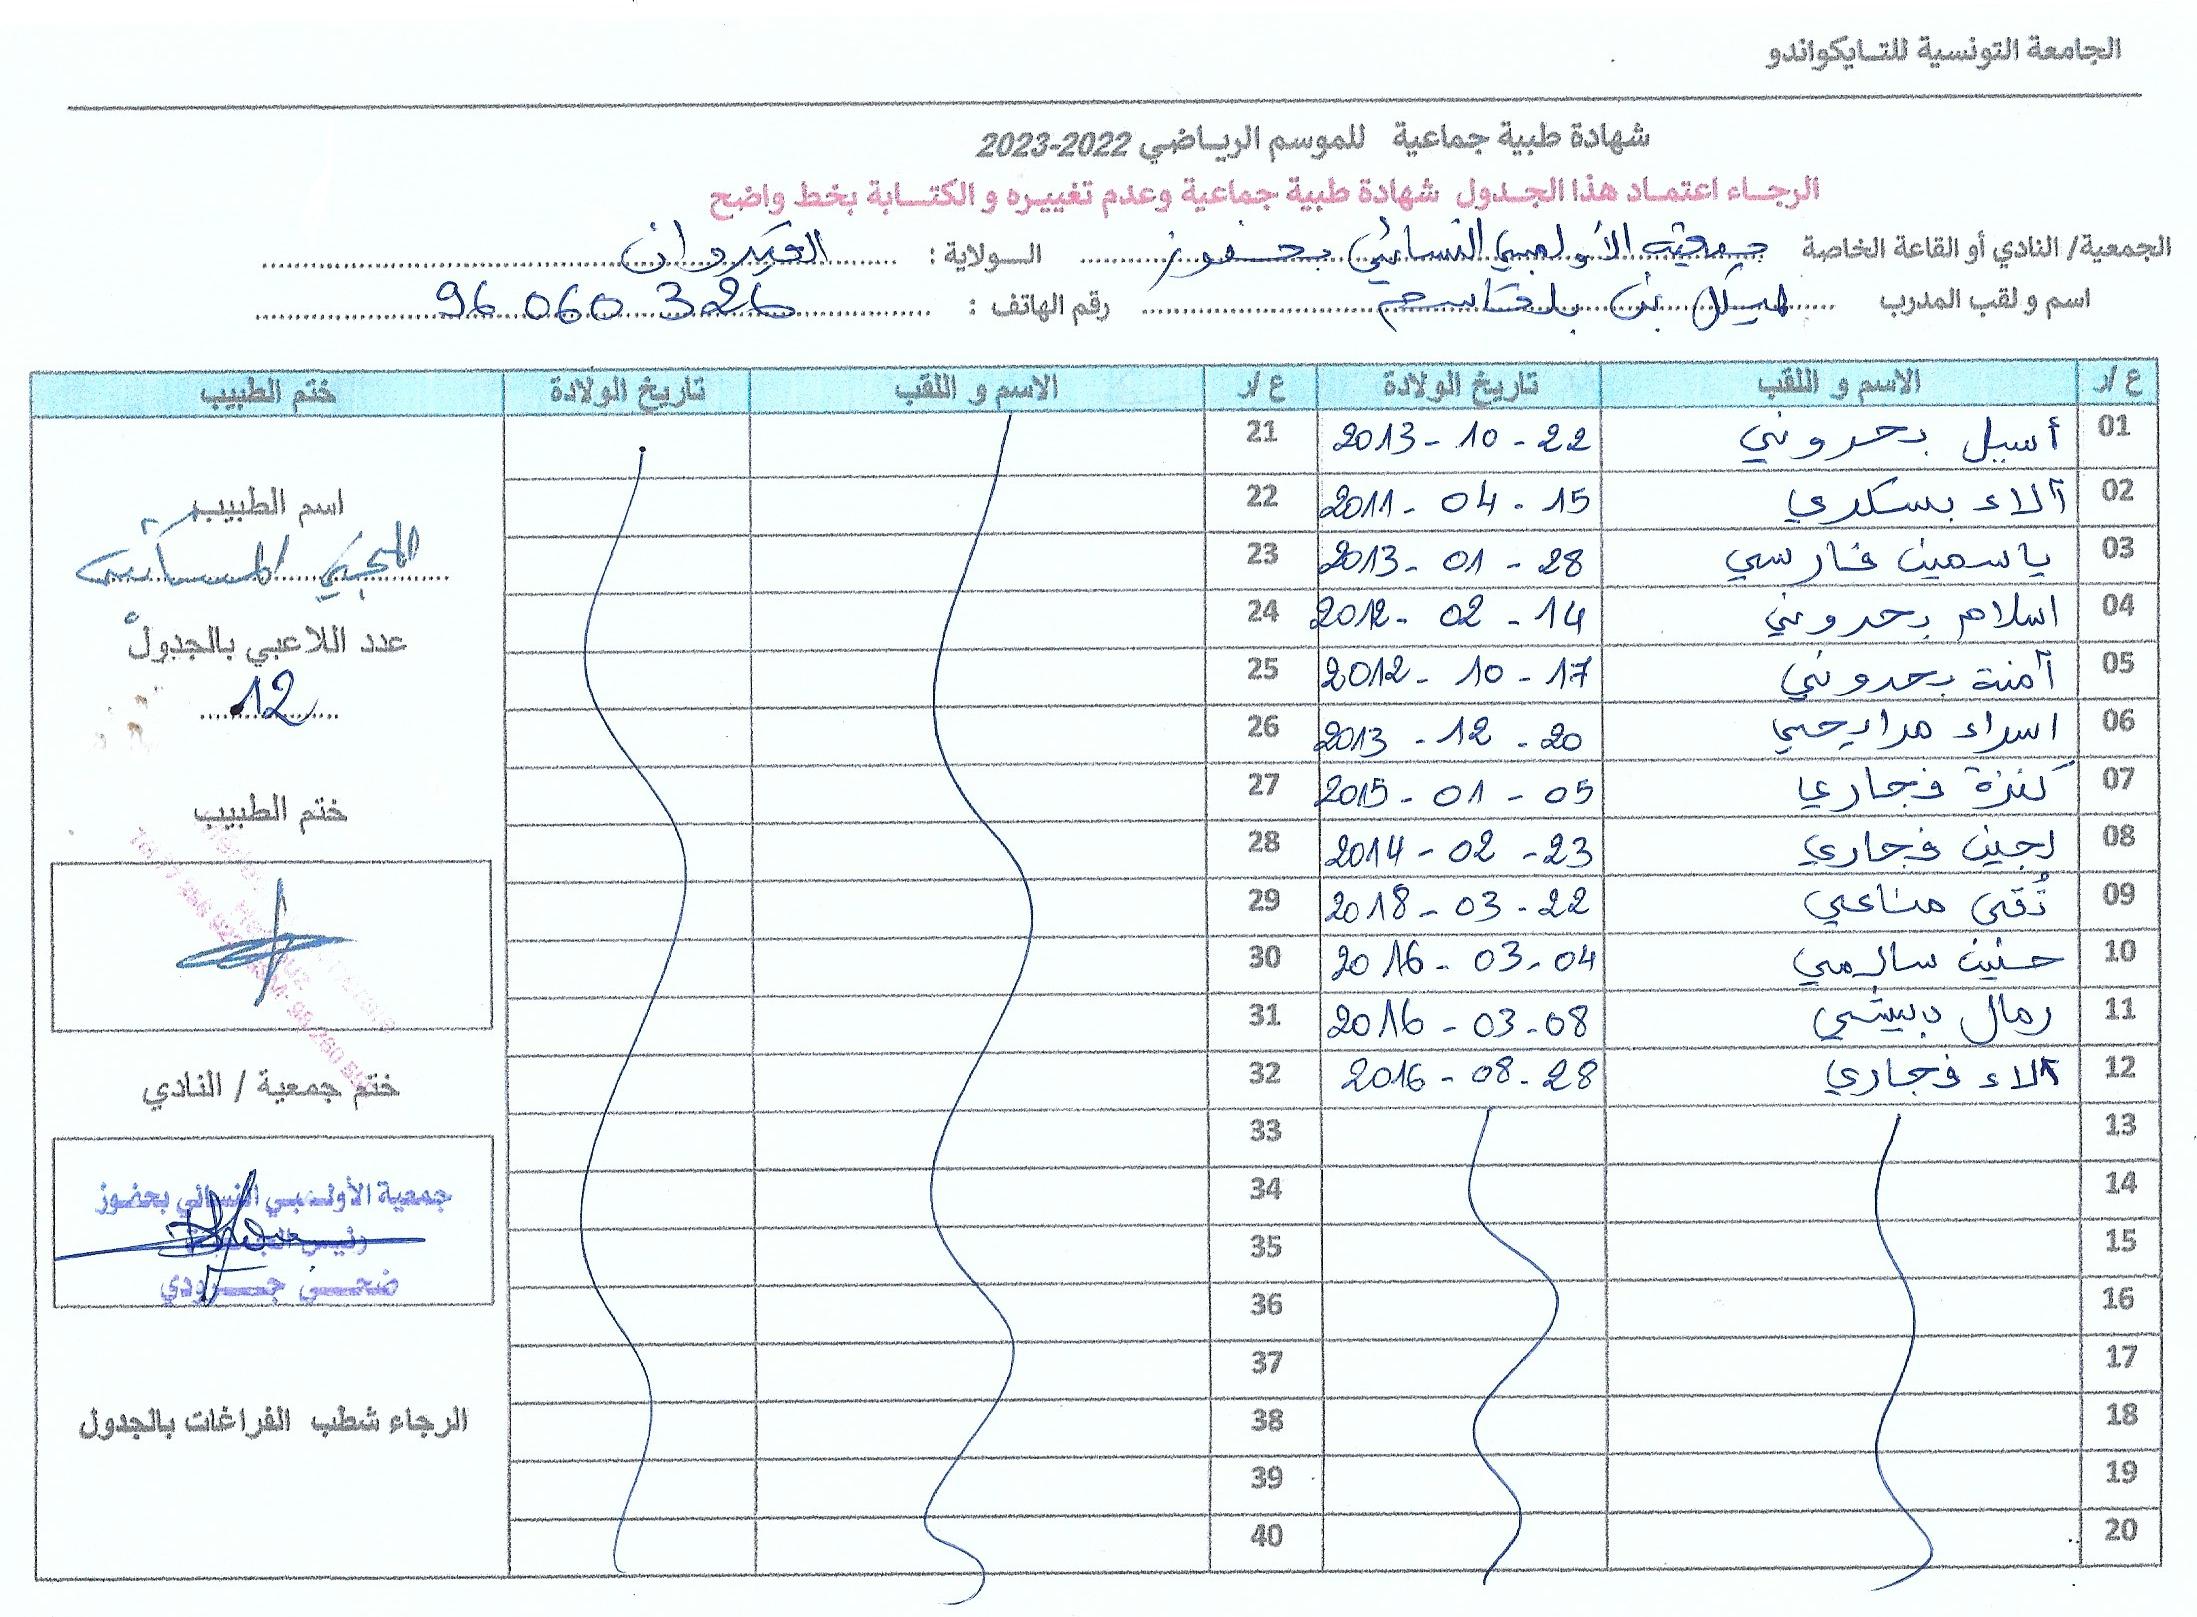 الجامعة التونسية للتايكواندو
شهادة طبية جماعية للموسم الرياضي 2022-2023
الرجاء اعتماد هذا الجدول شهادة طبية جماعية وعدم تغييره و الكتابة بخط واضح
الجمعية/ النادي أو القاعة الخاصة جمعية الأولمبي النسائي بحفوز الولاية : القيروان
اسم و لقب المدرب هيكل بن بلقاسم رقم الهاتف : 96 060 326
ع/ر الاسم و اللقب تاريخ الولادة ع/ر الاسم و اللقب تاريخ الولادة ختم الطبيب
01 أسيل بحروني 2013 - 10 - 22 21
02 آلاء بسكري 2011 - 04 - 15 22
03 ياسمين فارسي 2013 - 01 - 28 23
04 اسلام بحروني 2012 - 02 - 14 24
05 آمنة بحروني 2012 - 10 - 17 25
06 اسراء مرايحي 2013 - 12 - 20 26
07 كنزة فجاري 2015 - 01 - 05 27
08 لجين فجاري 2014 - 02 - 23 28
09 تُقى مناعي 2018 - 03 - 22 29
10 حنين سالمي 2016 - 03 - 04 30
11 رمال دبيشي 2016 - 03 - 08 31
12 آلاء فجاري 2016 - 08 - 28 32
13 33
14 34
15 35
16 36
17 37
18 38
19 39
20 40
اسم الطبيب
عدد اللاعبي بالجدول
12
ختم الطبيب
ختم جمعية / النادي
جمعية الأولمبي النسائي بحفوز
رئيس
ضحى
الرجاء شطب الفراغات بالجدول